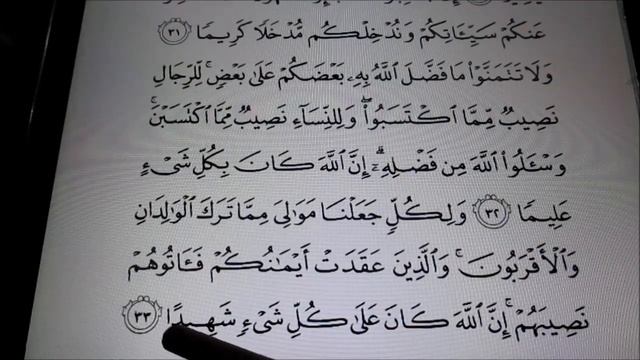 عَنكُمْ سَيِّـَٔاتِكُمْ وَنُدْخِلْكُم مُّدْخَلًا كَرِيمًا ٣١
وَلَا تَتَمَنَّوْا۟ مَا فَضَّلَ ٱللَّهُ بِهِۦ بَعْضَكُمْ عَلَىٰ بَعْضٍ ۚ لِّلرِّجَالِ
نَصِيبٌ مِّمَّا ٱكْتَسَبُوا۟ ۖ وَلِلنِّسَآءِ نَصِيبٌ مِّمَّا ٱكْتَسَبْنَ ۚ
وَسْـَٔلُوا۟ ٱللَّهَ مِن فَضْلِهِۦٓ ۗ إِنَّ ٱللَّهَ كَانَ بِكُلِّ شَىْءٍ
عَلِيمًا ٣٢ وَلِكُلٍّ جَعَلْنَا مَوَٰلِىَ مِمَّا تَرَكَ ٱلْوَٰلِدَانِ
وَٱلْأَقْرَبُونَ ۚ وَٱلَّذِينَ عَقَدَتْ أَيْمَٰنُكُمْ فَـَٔاتُوهُمْ
نَصِيبَهُمْ ۚ إِنَّ ٱللَّهَ كَانَ عَلَىٰ كُلِّ شَىْءٍ شَهِيدًا ٣٣